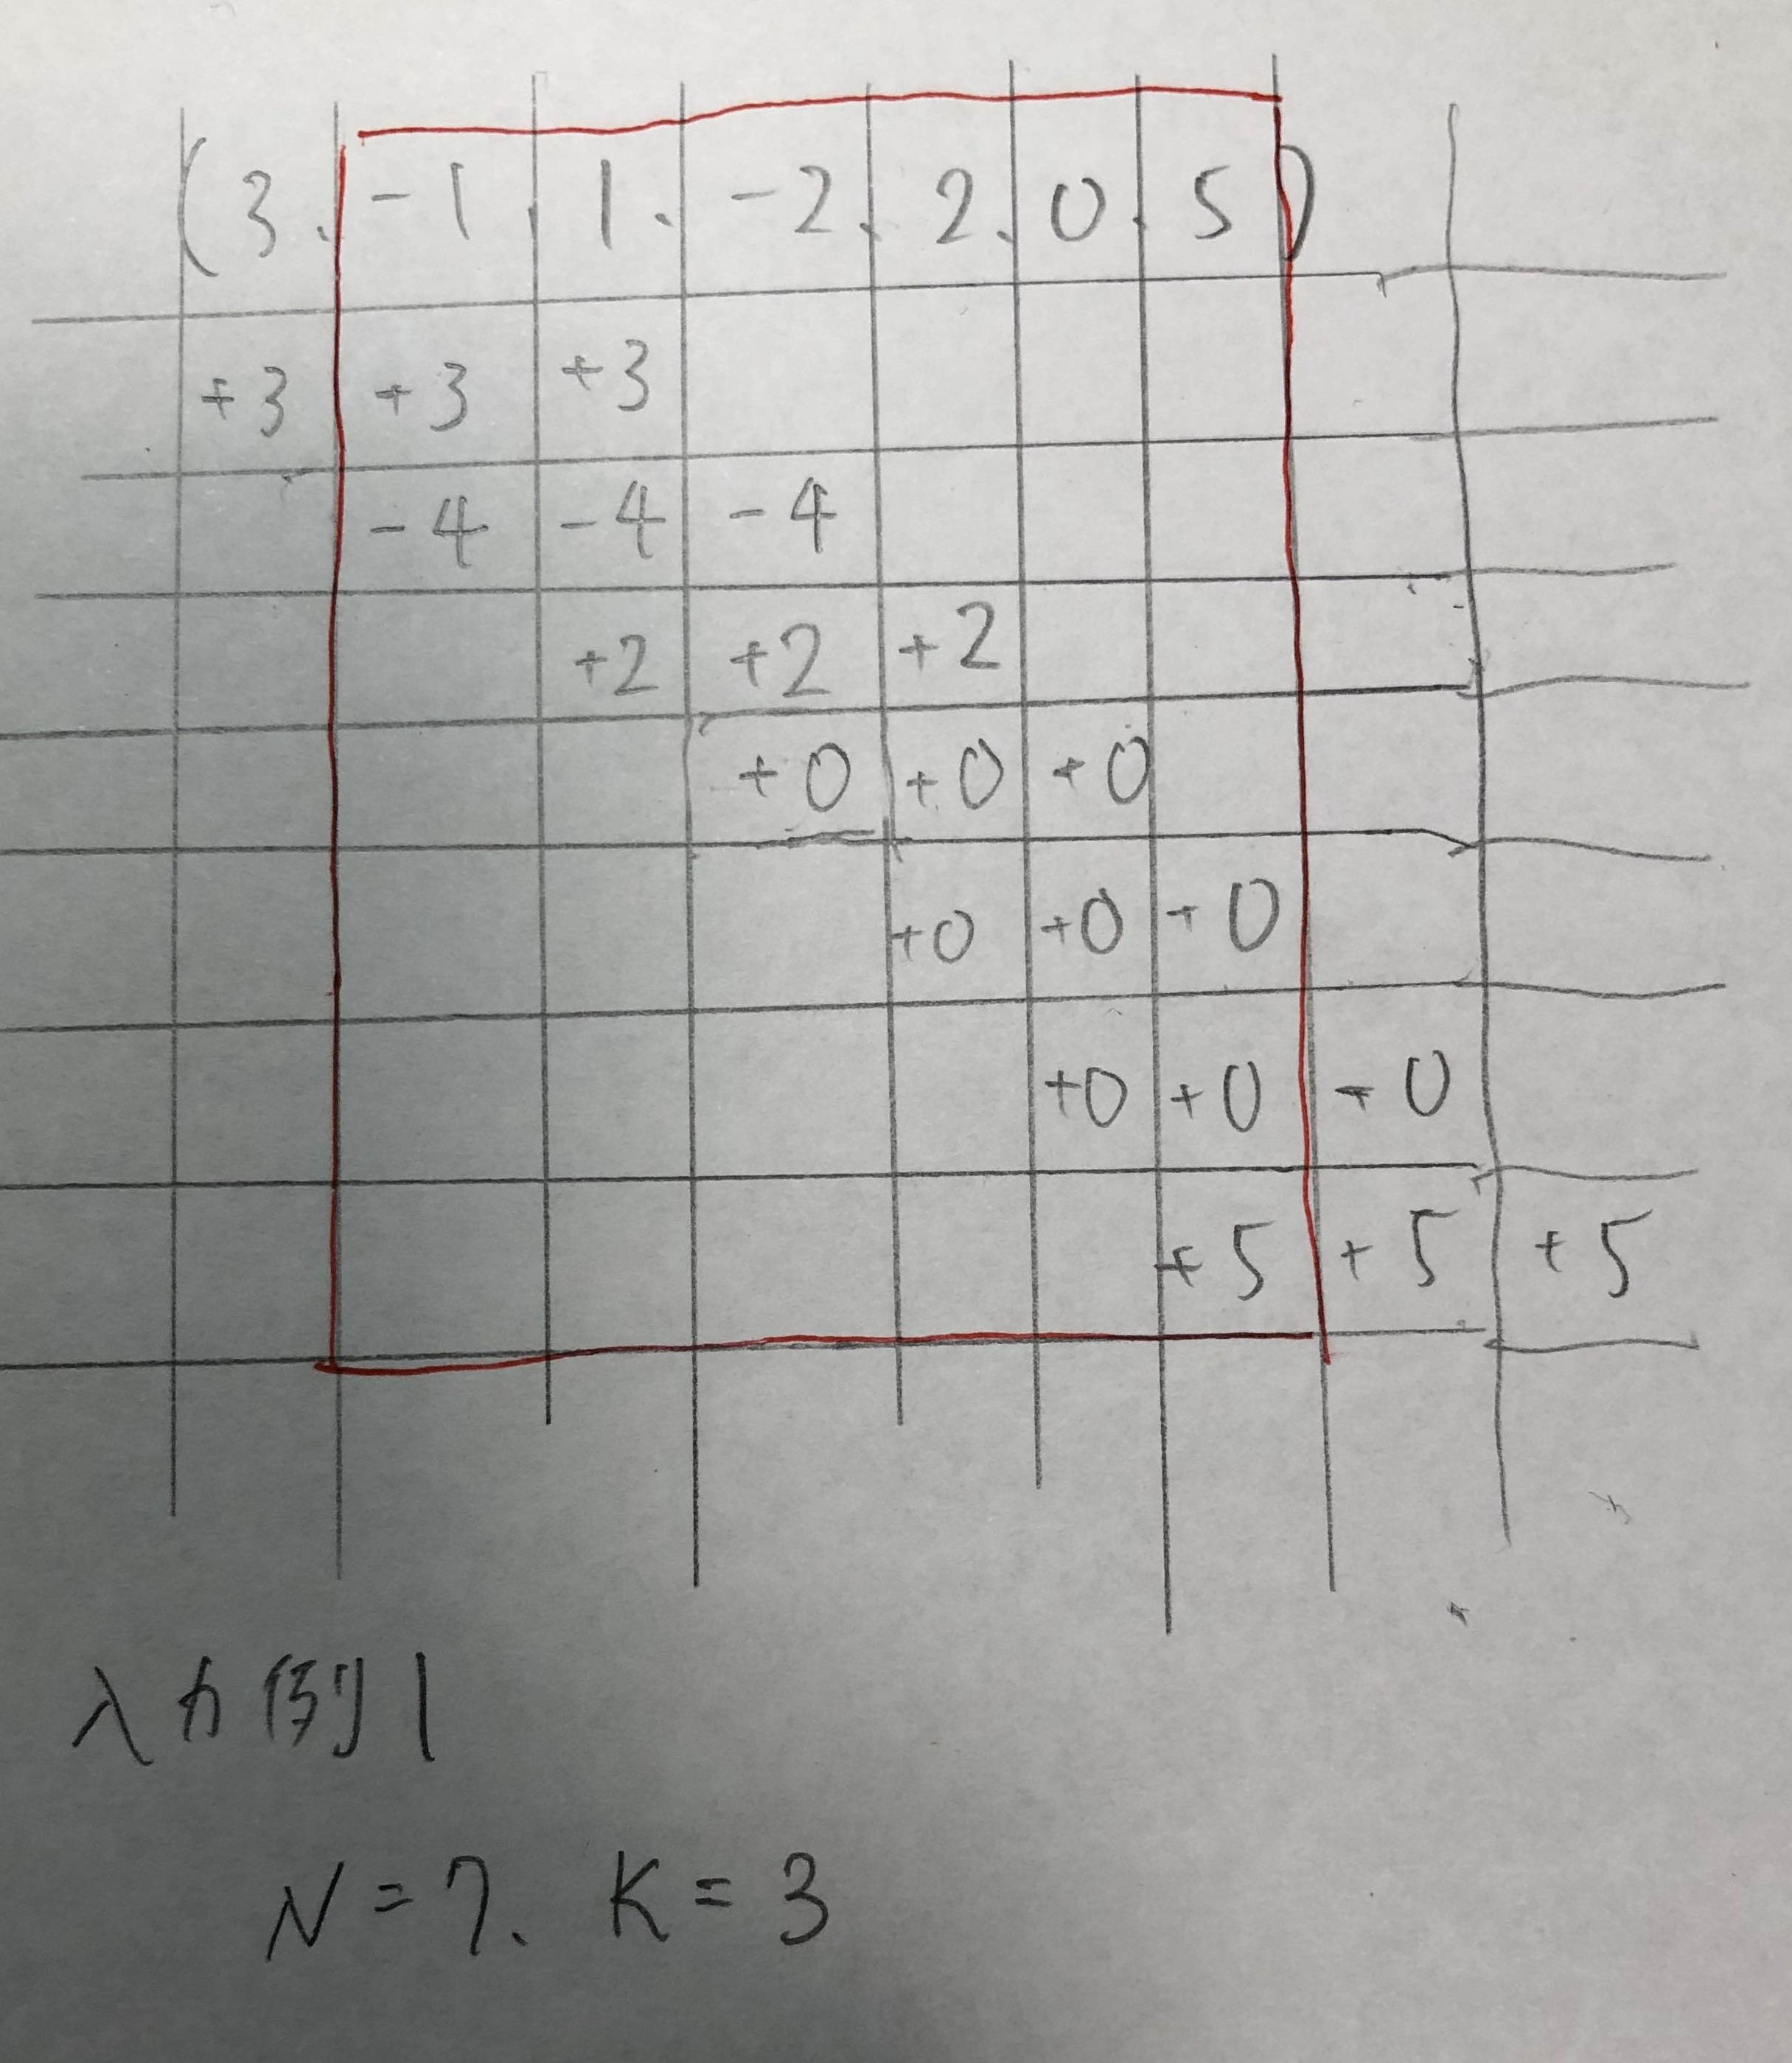 (3, -1, 1, -2, 2, 0, 5)
+3 +3 +3
-4 -4 -4
+2 +2 +2
+0 +0 +0
+0 +0 +0
+0 +0 +0
+5 +5 +5
入力例1
N=7, K=3